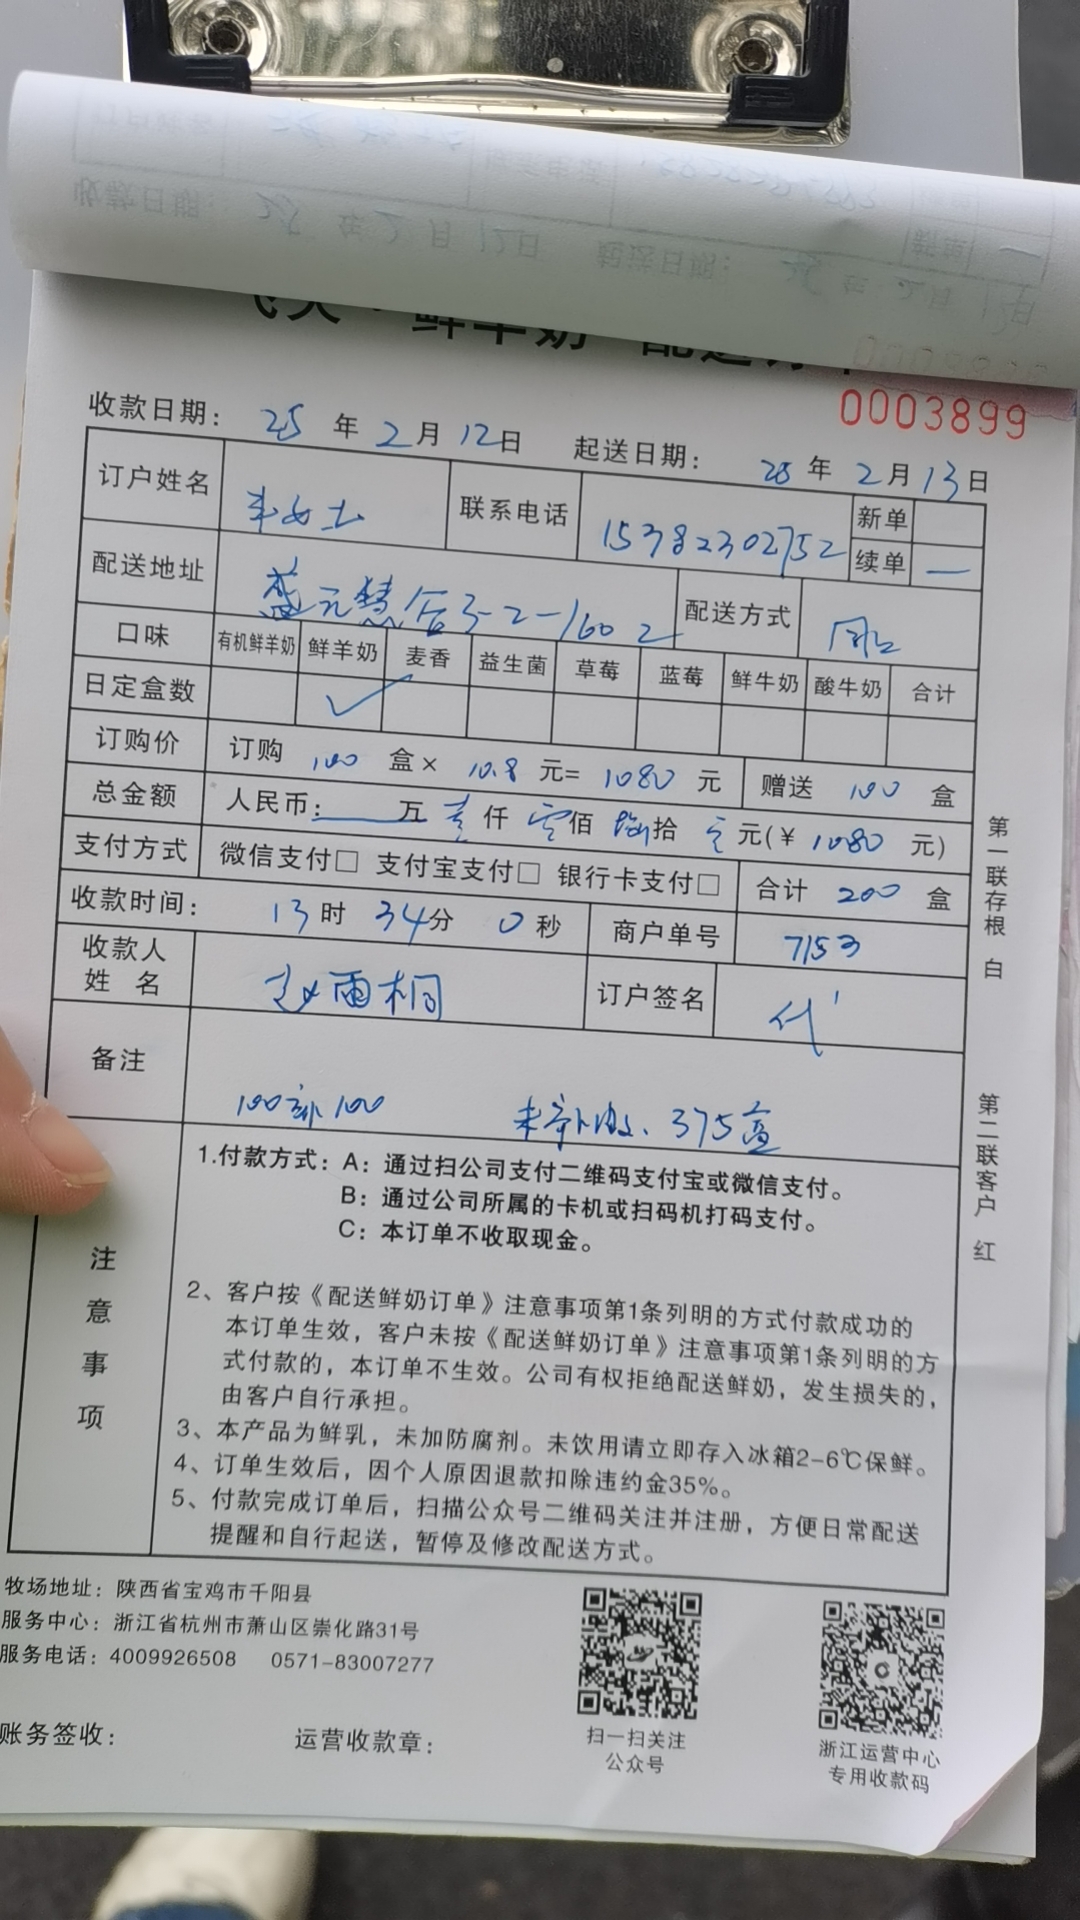 飞天·鲜羊奶 配送订单
0003899
收款日期: 25年2月12日 起送日期: 25年2月13日
订户姓名 女士 联系电话 15382302752 新单
续单 一
配送地址 盛元慧谷3-2-1602 配送方式
口味 有机鲜羊奶 鲜羊奶 麦香 益生菌 草莓 蓝莓 鲜牛奶 酸牛奶 合计
日定盒数 ✓
订购价 订购 100 盒× 10.8 元= 1080 元 赠送 100 盒
总金额 人民币: 万 壹仟 零佰 捌拾 零元(¥ 1080 元)
支付方式 微信支付□ 支付宝支付□ 银行卡支付□ 合计 200 盒
收款时间: 13时 34分 0秒 商户单号 7153
收款人姓名 赵雨桐 订户签名 代
备注 100送100 375蓝
注意事项
1.付款方式: A: 通过扫公司支付二维码支付宝或微信支付。
B: 通过公司所属的卡机或扫码机打码支付。
C: 本订单不收取现金。
2、客户按《配送鲜奶订单》注意事项第1条列明的方式付款成功的
本订单生效,客户未按《配送鲜奶订单》注意事项第1条列明的方
式付款的,本订单不生效。公司有权拒绝配送鲜奶,发生损失的,
由客户自行承担。
3、本产品为鲜乳,未加防腐剂。未饮用请立即存入冰箱2-6℃保鲜。
4、订单生效后,因个人原因退款扣除违约金35%。
5、付款完成订单后,扫描公众号二维码关注并注册,方便日常配送
提醒和自行起送,暂停及修改配送方式。
第一联存根 白
第二联客户 红
牧场地址: 陕西省宝鸡市千阳县
服务中心: 浙江省杭州市萧山区崇化路31号
服务电话: 4009926508 0571-83007277
账务签收: 运营收款章:
扫一扫关注
公众号
浙江运营中心
专用收款码